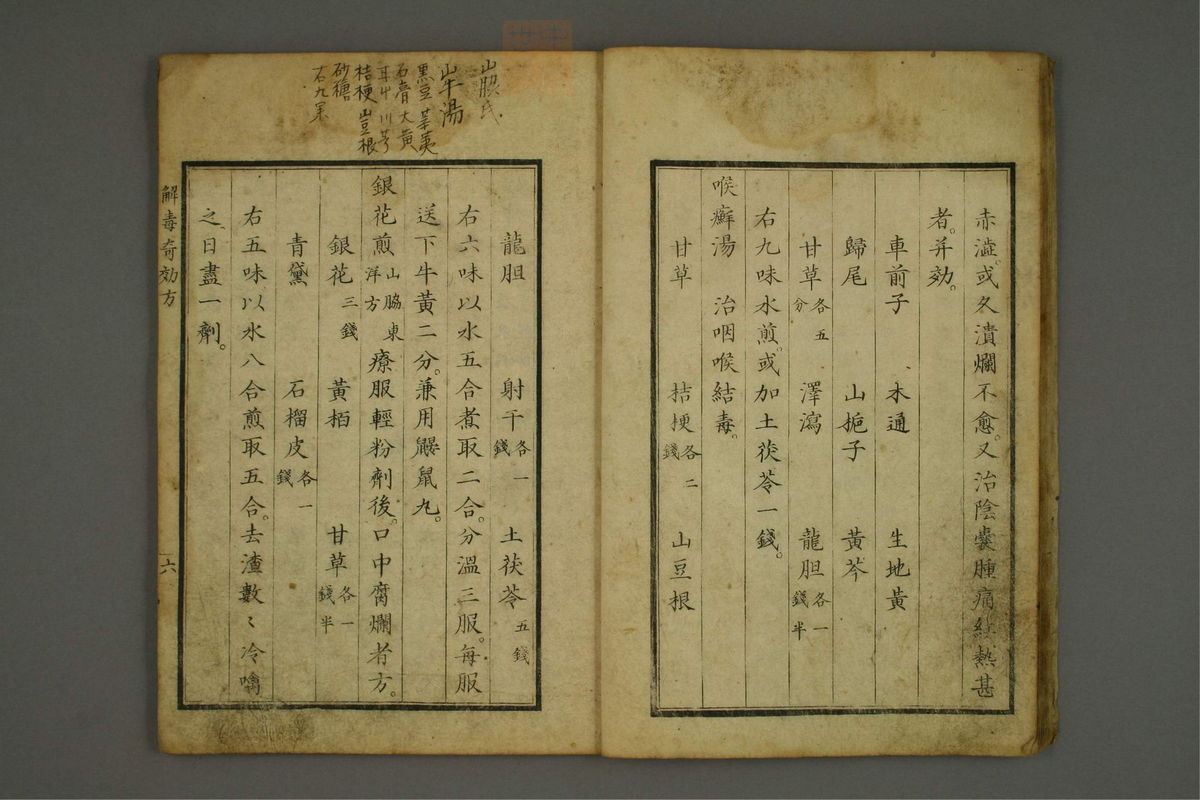 赤澁。或久潰爛不愈。又治陰囊腫痛紅熱甚
者。并効。
車前子 木通 生地黃
歸尾 山梔子 黃芩
甘草各五分 澤瀉 龍胆各一錢半
右九味水煎。或加土茯苓一錢。
喉癬湯 治咽喉結毒。
甘草 桔梗各二錢 山豆根
龍胆 射干各一錢 土茯苓五錢
右六味以水五合煮取二合。分溫三服。每服
送下牛黃二分。兼用鼴鼠丸。
銀花煎山脇東洋方 療服輕粉劑後。口中腐爛者方。
銀花三錢 黃栢 甘草各一錢半
青黛 石榴皮各一錢
右五味以水八合煎取五合。去渣數〻冷噙
之。日盡一劑。
解毒奇効方
六
山脇氏
山牛湯
黑豆 莱萸
石膏 大黃
甘草 川芎
桔梗 山豆根
砂糖
右九味